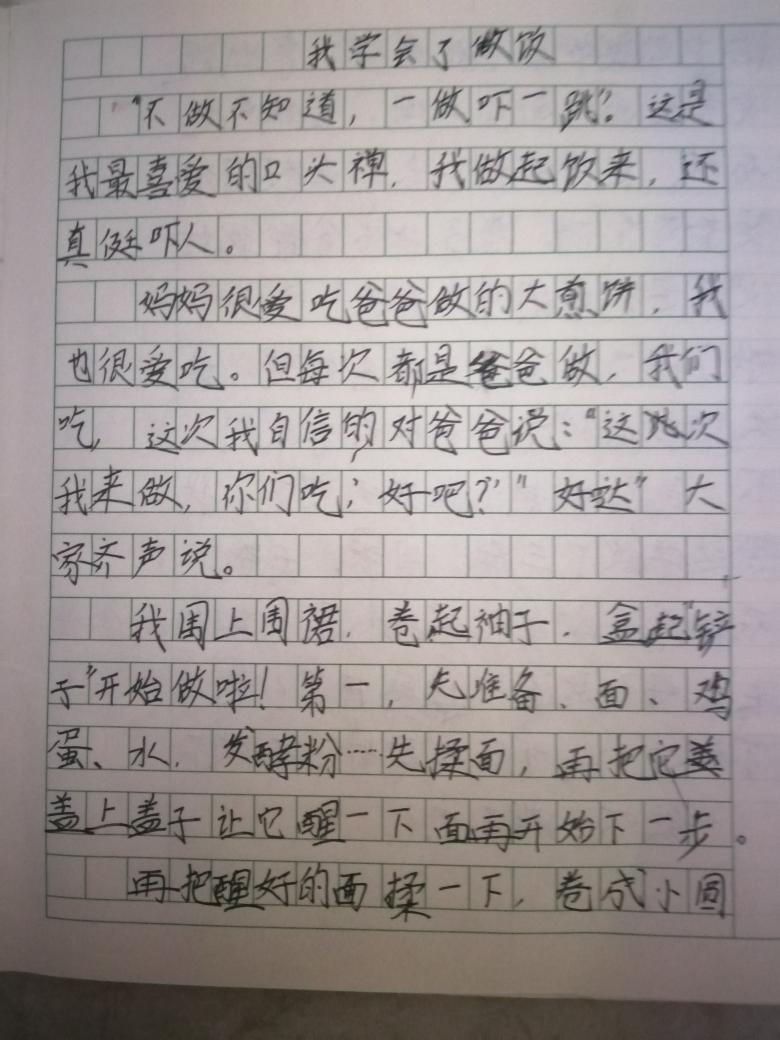 我学会了做饭
“不做不知道，一做吓一跳”。这是
我最喜爱的口头禅，我做起饭来，还
真挺吓人。
妈妈很爱吃爸爸做的大煎饼，我
也很爱吃。但每次都是爸爸做，我们
吃，这次我自信的对爸爸说：“这次
我来做，你们吃；好吧？”“好哒”大
家齐声说。
我围上围裙，卷起袖子，拿起“铲
子”开始做啦！第一，先准备、面、鸡
蛋、水，发酵粉……先揉面，再把它盖
盖上盖子让它醒一下面再开始下一步。
再把醒好的面揉一下，卷成小圆